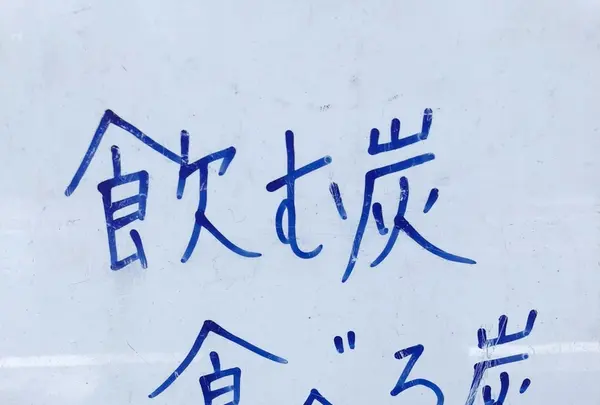 飲む炭
食べる炭